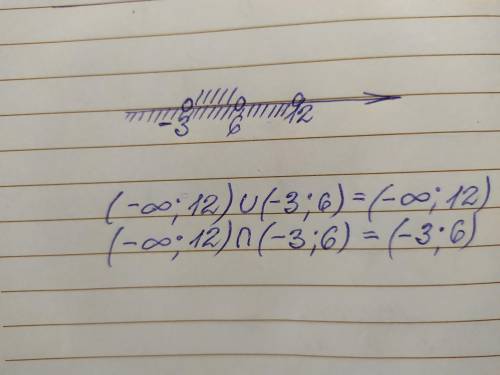 -3 6 12
(-∞; 12) ∪ (-3; 6) = (-∞; 12)
(-∞; 12) ∩ (-3; 6) = (-3; 6)